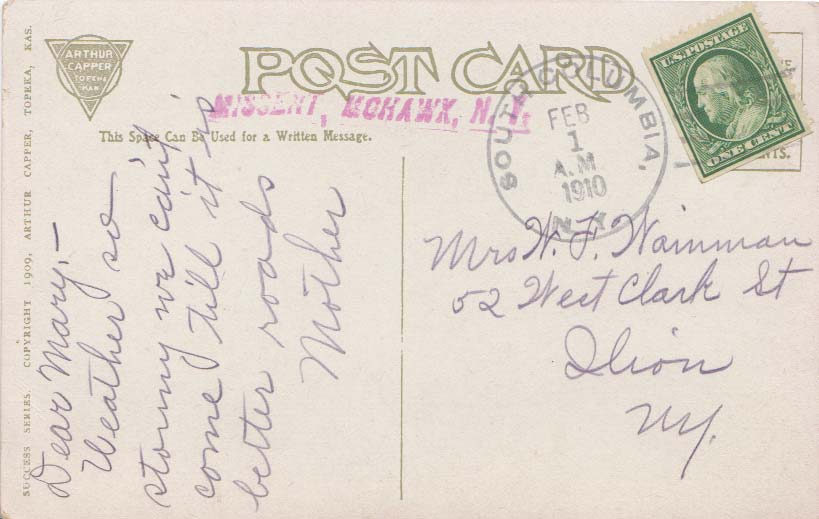 ARTHUR
CAPPER
TOPEKA
KAN
POST CARD
MISSENT, MOHAWK, N.Y.
This Space Can Be Used for a Written Message.
SOUTH COLUMBIA,
FEB
1
A.M
1910
N.Y.
U.S. POSTAGE
ONE CENT
Dear Mary.—
Weather so
stormy we can't
come till it is
better roads
Mother
Mrs W. F. Wainman
52 West Clark St
Ilion
N.Y.
SUCCESS SERIES. COPYRIGHT 1909, ARTHUR CAPPER, TOPEKA, KAS.